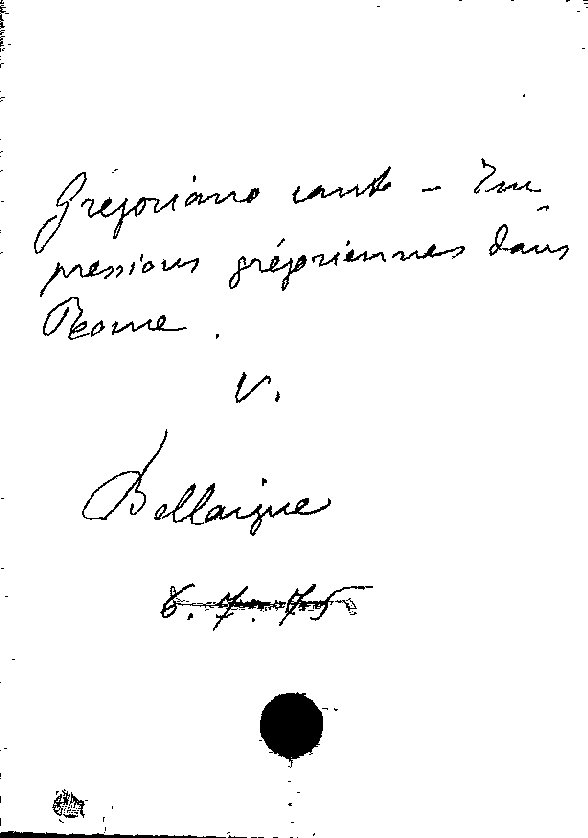 Gregoriano canto - Im-
pressions grégoriennes dans
Rome.
V.
Bellaigue
6.7.75